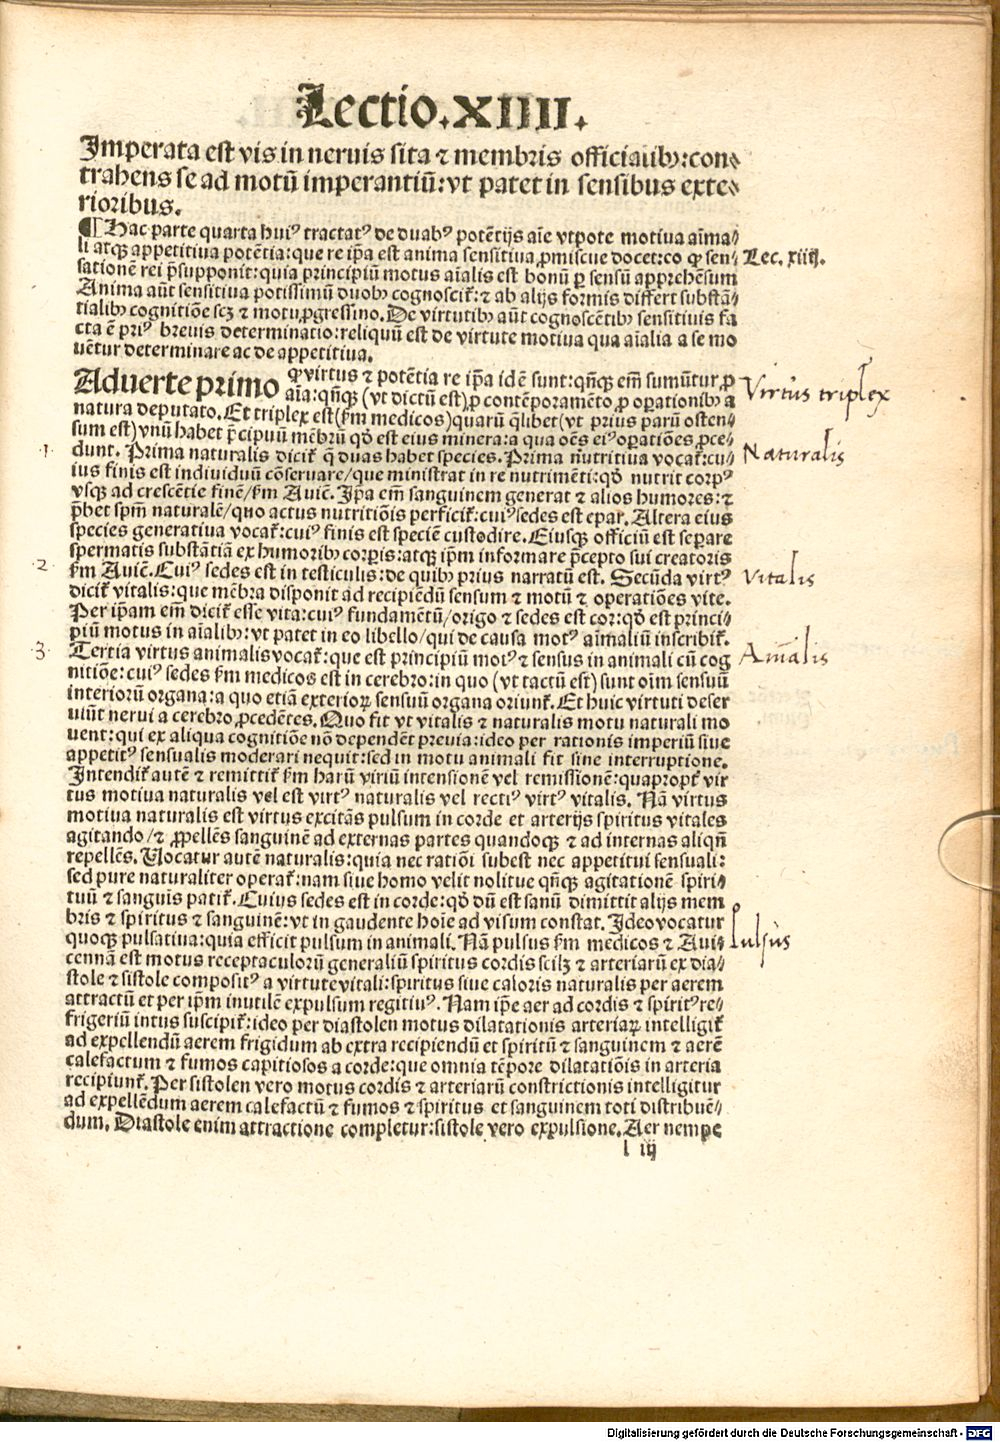 Lectio.XIIII.
Imperata est vis in neruis sita ⁊ membris officialibꝰ:con⸗
trahens se ad motū imperantiū:vt patet in sensibus exte⸗
rioribus.
¶ Hac parte quarta huiꝰ tractatꝰ de duabꝰ potētijs aīe vtpote motiua aīma⸗
li atqꝫ appetitiua potētia:que re ip̄a est anima sensitiua ꝓmiscue docet:eo ꝙ sen⸗
Lec. xiiij.
sationē rei p̄supponit:quia principiū motus aīalis est bonū ꝑ sensū apprehēsum
Anima aūt sensitiua potissimū duobꝰ cognoscit᷑:⁊ ab alijs formis differt substā⸗
tialibꝰ cognitiōe scꝫ ⁊ motu ꝓgressiuo. De virtutibꝰ aūt cognoscētibꝰ sensitiuis fa
cta ē priꝰ breuis determinatio:reliquū est de virtute motiua qua aīalia a se mo
uētur determinare ac de appetitiua.
Aduerte primo ꝙ virtus ⁊ potētia re ip̄a idē sunt:qn̄qꝫ em̄ sumūtur ꝓ
aīa:qn̄qꝫ (vt dictū est) ꝓ contēporamēto ꝓ oꝑationibꝰ a
Virtus triplex
natura deputato. Et triplex est (ẜm medicos) quarū q̄libet (vt prius parū osten⸗
sum est) vnū habet p̄cipuū mēbrū qđ est eius minera:a qua oēs eiꝰ oꝑatiōes ꝓce⸗
·1·
dunt. Prima naturalis dicit᷑ q̄ duas habet species. Prima nutritiua vocat᷑:cu⸗
Naturalis
ius finis est indiuiduū cōseruare/que ministrat in re nutrimēti:qđ nutrit corpꝰ
vsqꝫ ad crescētie finē/ẜm Auicē. Ip̄a em̄ sanguinem generat ⁊ alios humores:⁊
p̄bet sp̄m naturalē/quo actus nutritiōis perficit᷑:cuiꝰ sedes est epar. Altera eius
species generatiua vocat᷑:cuiꝰ finis est speciē custodire. Eiusqꝫ officiū est seꝑare
spermatis substātiā ex humoribꝰ corꝑis:atqꝫ ip̄m informare p̄cepto sui creatoris
·2·
ẜm Auicē. Cuiꝰ sedes est in testiculis:de quibꝰ prius narratū est. Secūda virtꝰ
vitalis
dicit᷑ vitalis:que mēbra disponit ad recipiēdū sensum ⁊ motū ⁊ operatiōes vite.
Per ip̄am em̄ dicit᷑ esse vita:cuiꝰ fundamētū/origo ⁊ sedes est cor:qđ est princi⸗
piū motus in aīalibꝰ:vt patet in eo libello/qui de causa motꝰ aīmaliū inscribit᷑.
·3·
Tertia virtus animalis vocat᷑:que est principiū motꝰ ⁊ sensus in animali cū cog
Aīmalis
nitiōe:cuiꝰ sedes ẜm medicos est in cerebro:in quo (vt tactū est) sunt oīm sensuū
interiorū organa:a quo etiā exterioꝝ sensuū organa oriunt᷑. Et huic virtuti deser
uiūt nerui a cerebro ꝓcedētes. Quo fit vt vitalis ⁊ naturalis motu naturali mo
uent:qui ex aliqua cognitiōe nō dependēt preuia:ideo per rationis imperiū siue
appetitꝰ sensualis moderari nequit:sed in motu animali fit sine interruptione.
Intendit᷑ autē ⁊ remittit᷑ ẜm harū viriū intensionē vel remissionē:quapropt᷑ vir
tus motiua naturalis vel est virtꝰ naturalis vel rectiꝰ virtꝰ vitalis. Nā virtus
motiua naturalis est virtus excitās pulsum in corde et arterijs spiritus vitales
agitando/⁊ ꝓpellēs sanguinē ad externas partes quandoqꝫ ⁊ ad internas aliqn̄
repellēs. Vocatur autē naturalis:quia nec ratiōi subest nec appetitui sensuali:
sed pure naturaliter operat᷑:nam siue homo velit nolitue qn̄qꝫ agitationē spiri⸗
tuū ⁊ sanguis patit᷑. Cuius sedes est in corde:qđ dū est sanū dimittit alijs mem
bris ⁊ spiritus ⁊ sanguinē:vt in gaudente hoīe ad visum constat. Ideo vocatur
quoqꝫ pulsatiua:quia efficit pulsum in animali. Nā pulsus ẜm medicos ⁊ Aui⸗
pulsus
cennā est motus receptaculorū generaliū spiritus cordis scilꝫ ⁊ arteriarū ex dia⸗
stole ⁊ sistole compositꝰ a virtute vitali:spiritus siue caloris naturalis per aerem
attractū et per ip̄m inutilē expulsum regitiuꝰ. Nam ip̄e aer ad cordis ⁊ spiritꝰ re⸗
frigeriū intus suscipit᷑:ideo per diastolen motus dilatationis arteriaꝝ intelligit᷑
ad expellendū aerem frigidum ab extra recipiendū et spiritū ⁊ sanguinem ⁊ aerē
calefactum ⁊ fumos capitiosos a corde:que omnia tēpore dilatatiōis in arteria
recipiunt᷑. Per sistolen vero motus cordis ⁊ arteriarū constrictionis intelligitur
ad expellēdum aerem calefactū ⁊ fumos ⁊ spiritus et sanguinem toti distribuē⸗
dum. Diastole enim attractione completur:sistole vero expulsione. Aer nempe
l iij
Digitalisierung gefördert durch die Deutsche Forschungsgemeinschaft - DFG